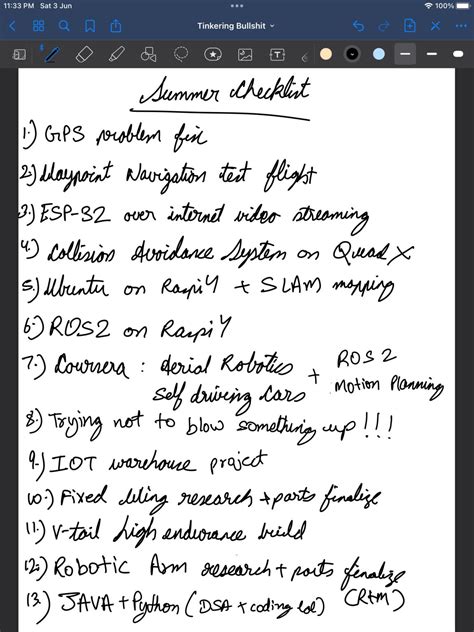 11:33 PM Sat 3 Jun
100%
Tinkering Bullshit
Summer Checklist
1.) GPS problem fix
2.) Waypoint Navigation test flight
3.) ESP-32 over internet video streaming
4.) Collision Avoidance System on Quad X
5.) Ubuntu on Raspi 4 + SLAM mapping
6.) ROS2 on Raspi 4
7.) Coursera : Aerial Robotics + ROS 2
Self driving Cars Motion Planning
8.) Trying not to blow something up!!!
9.) IOT warehouse project
10.) Fixed Wing research + parts finalize
11.) V-tail high endurance build
12.) Robotic Arm research + parts finalize
13.) JAVA + Python (DSA + coding lol) (R+M)